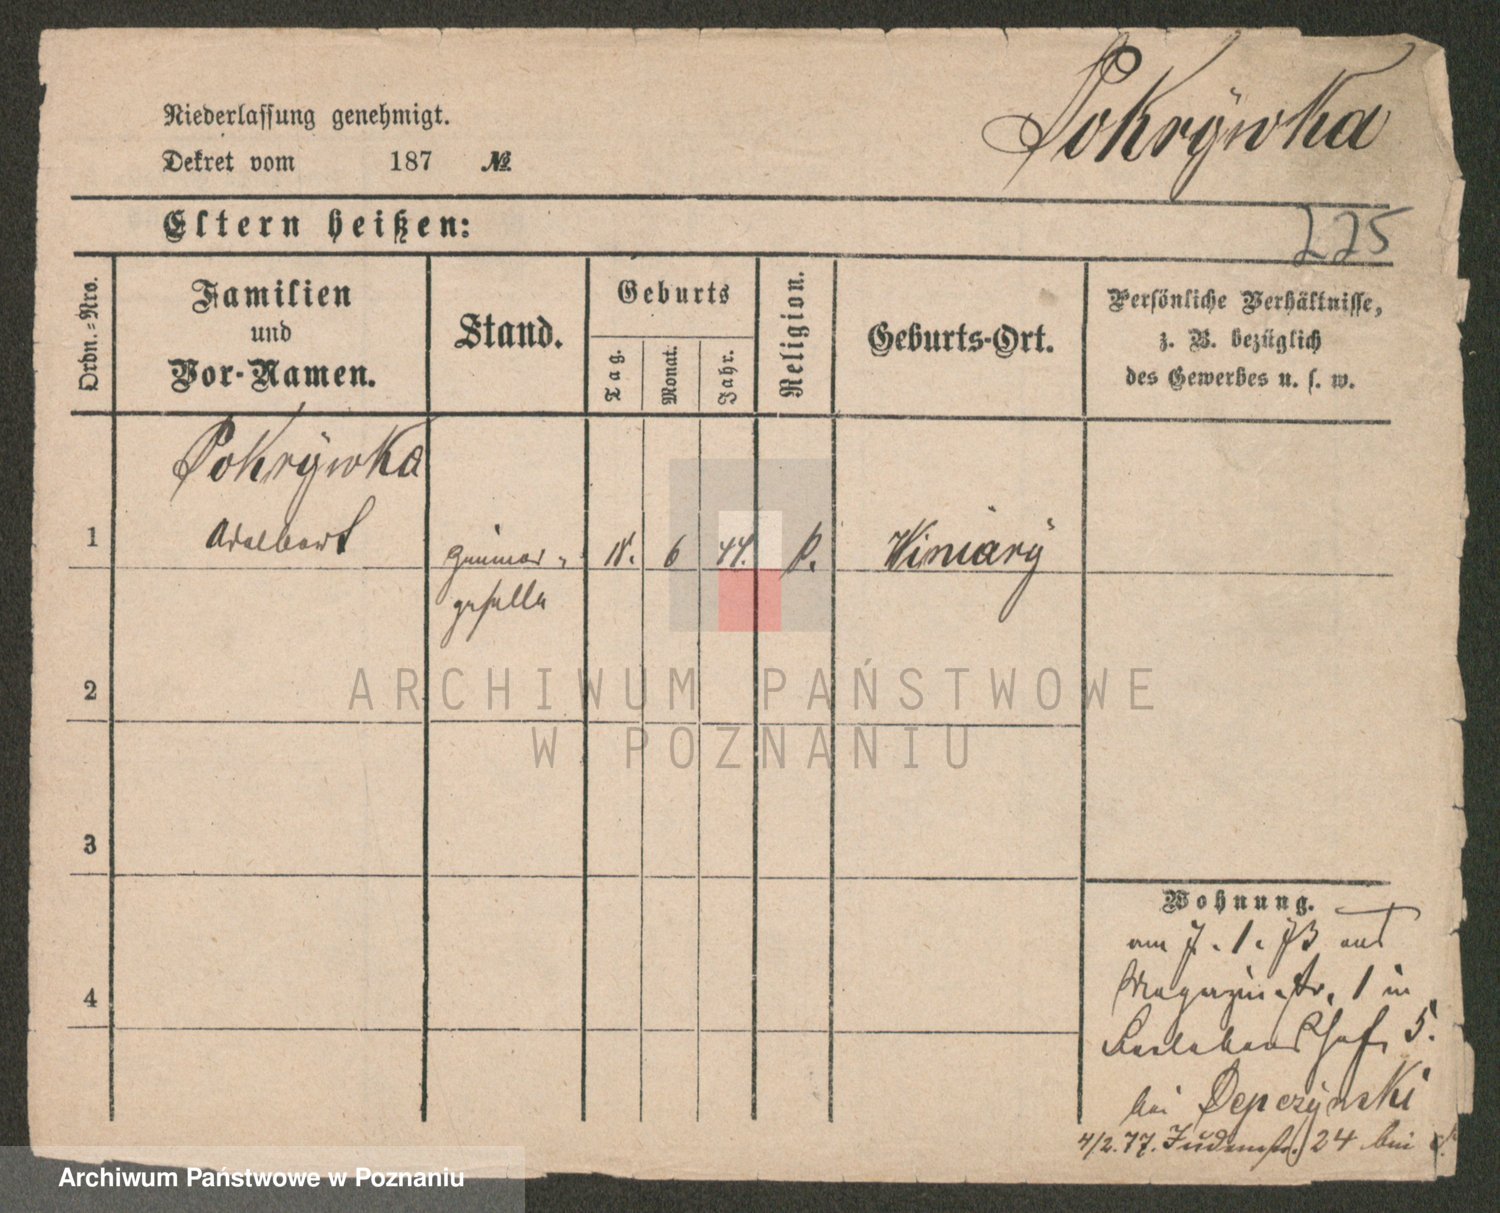 Niederlassung genehmigt.
Dekret vom 187 №
Pokrÿwka
Eltern heißen:
225
Ordn.-Nro.
Familien
und
Vor-Namen.
Stand.
Geburts
Tag.
Monat.
Jahr.
Religion.
Geburts-Ort.
Persönliche Verhältnisse,
z. B. bezüglich
des Gewerbes u. s. w.
Pokrÿwka
1 Adalbert 18. 6 44. k. Winiarÿ
geselle
2
ARCHIWUM PAŃSTWOWE
W POZNANIU
3
Wohnung.
am 7. 1. 73 aus
Magazinstr. 1 in
4
5.
bei Depczÿnski
4/2.77. Judenstr. 24 bei
Archiwum Państwowe w Poznaniu